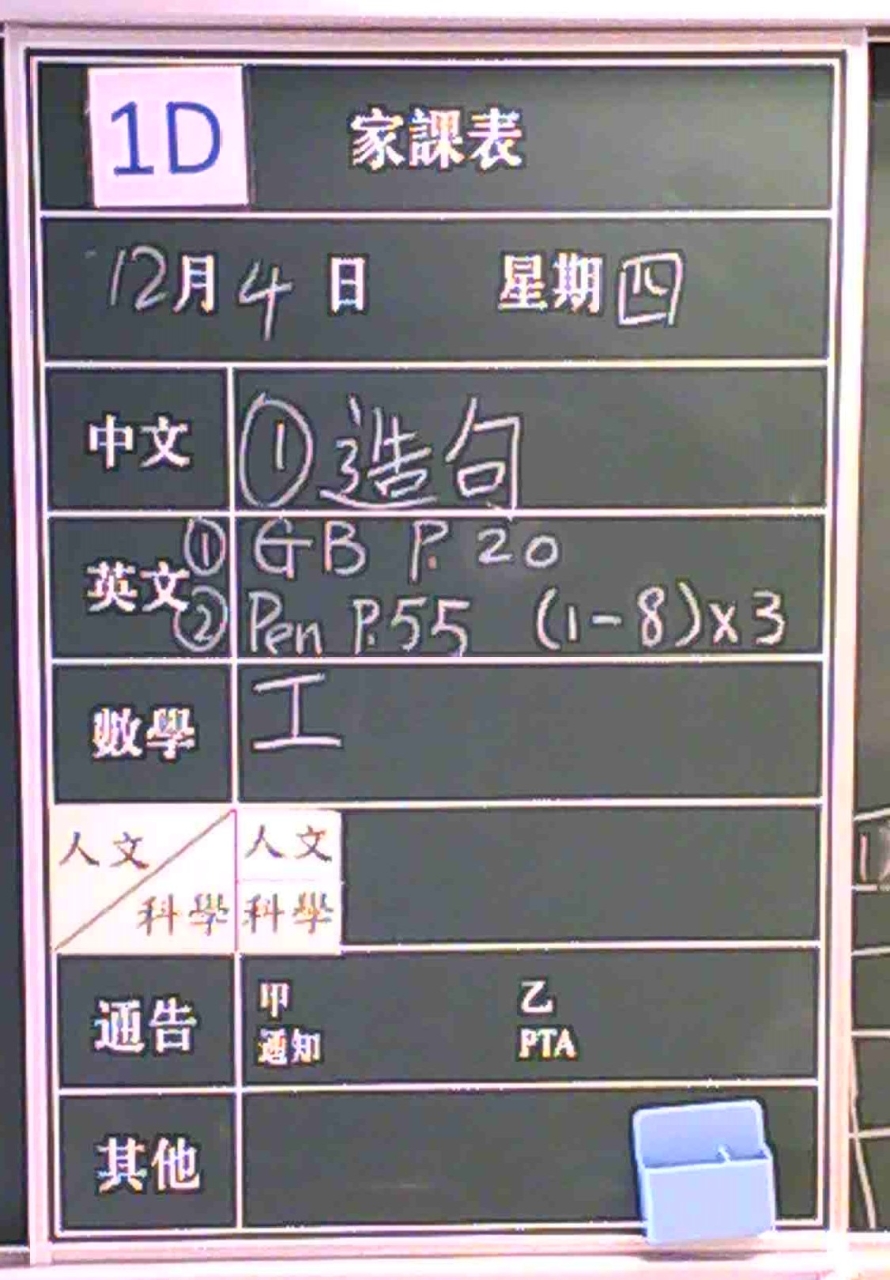 1D 家課表
12月4日 星期四
中文 ①造句
英文 ① GB P.20
② Pen P.55 (1-8)x3
數學 工
人文 人文
科學 科學
通告 甲 乙
通知 PTA
其他